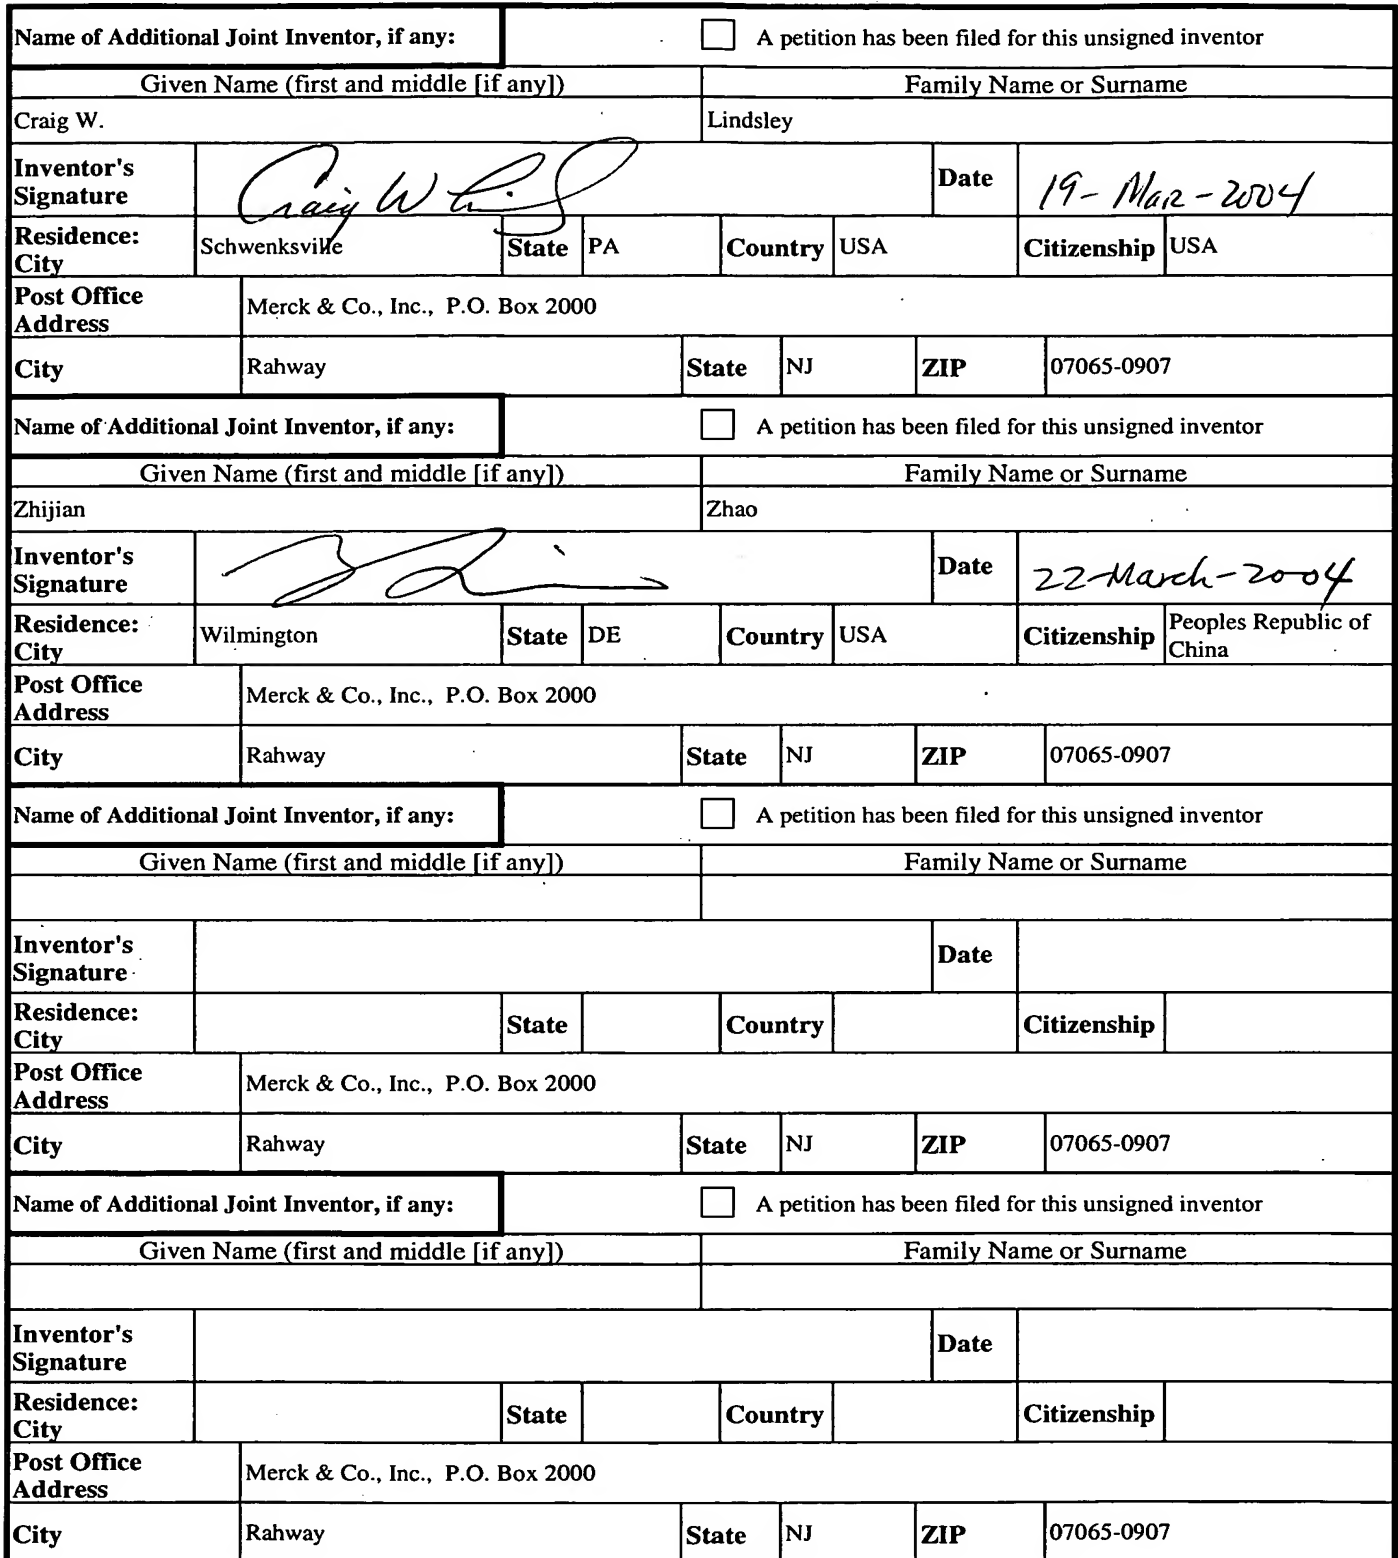 Name of Additional Joint Inventor, if any: A petition has been filed for this unsigned inventor
Given Name (first and middle [if any]) Family Name or Surname
Craig W. Lindsley
Inventor's Signature Craig W Date 19-Mar-2004
Residence: City Schwenksville State PA Country USA Citizenship USA
Post Office Address Merck & Co., Inc., P.O. Box 2000
City Rahway State NJ ZIP 07065-0907
Name of Additional Joint Inventor, if any: A petition has been filed for this unsigned inventor
Given Name (first and middle [if any]) Family Name or Surname
Zhijian Zhao
Inventor's Signature Date 22-March-2004
Residence: City Wilmington State DE Country USA Citizenship Peoples Republic of China
Post Office Address Merck & Co., Inc., P.O. Box 2000
City Rahway State NJ ZIP 07065-0907
Name of Additional Joint Inventor, if any: A petition has been filed for this unsigned inventor
Given Name (first and middle [if any]) Family Name or Surname
Inventor's Signature Date
Residence: City State Country Citizenship
Post Office Address Merck & Co., Inc., P.O. Box 2000
City Rahway State NJ ZIP 07065-0907
Name of Additional Joint Inventor, if any: A petition has been filed for this unsigned inventor
Given Name (first and middle [if any]) Family Name or Surname
Inventor's Signature Date
Residence: City State Country Citizenship
Post Office Address Merck & Co., Inc., P.O. Box 2000
City Rahway State NJ ZIP 07065-0907